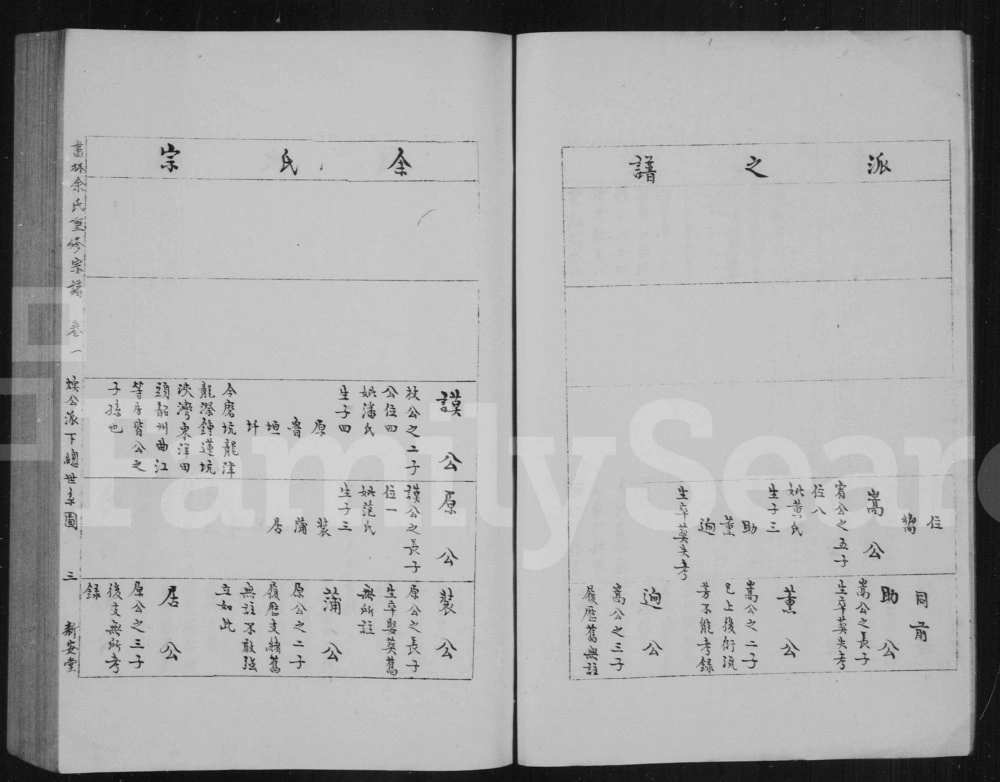 派之譜
位
嵩公
賓公之五子
位八
妣黃氏
生子三
助
董
逈
生卒莫失考
同前
助公
嵩公之長子
生卒莫失考
董公
嵩公之二子
已上後衍流
芳不能考錄
逈公
嵩公之三子
履歷舊無註
余氏宗
謨公
公位四
妣潘氏
生子四
原
魯
垣
圩
今磨坑龍津
龍潦鐘蓮坑
洪灣東洋田
頭韶州曲江
等房皆公之
子孫也
原公
謨公之長子
位一
妣范氏
生子三
裝
蒲
居
裝公
原公之長子
生卒娶莫舊
無所註
蒲公
原公之二子
履歷支緒舊
無註不敢強
立如此
居公
原公之三子
後支無所考
錄
書林余氏重修宗譜 卷一 煥公派下總世系圖 三 新安堂
FamilySearch